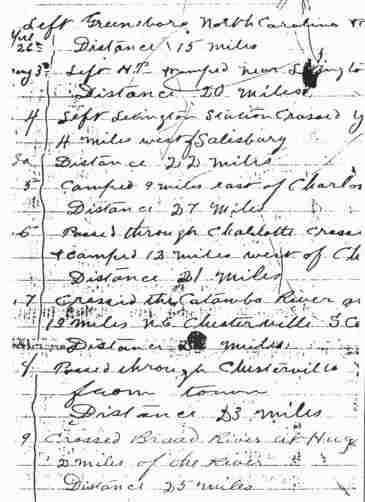 Left Greensboro North Carolina
26th Distance 15 miles
3d Left H.P. camped near
Distance 20 miles
4 Left Lexington Station Crossed
4 miles west of Salisbury
Distance 22 miles
5 Camped 9 miles east of Charlo
Distance 27 miles
6 Passed through Charlotte Crosse
& camped 12 miles west of Ch
Distance 21 miles
7 Crossed the Catawba River
12 miles N.E. Chesterville S.Co
Distance miles
Passed through Chesterville
from town
Distance 23 miles
9 Crossed Broad River at
2 miles of the River
Distance 25 miles